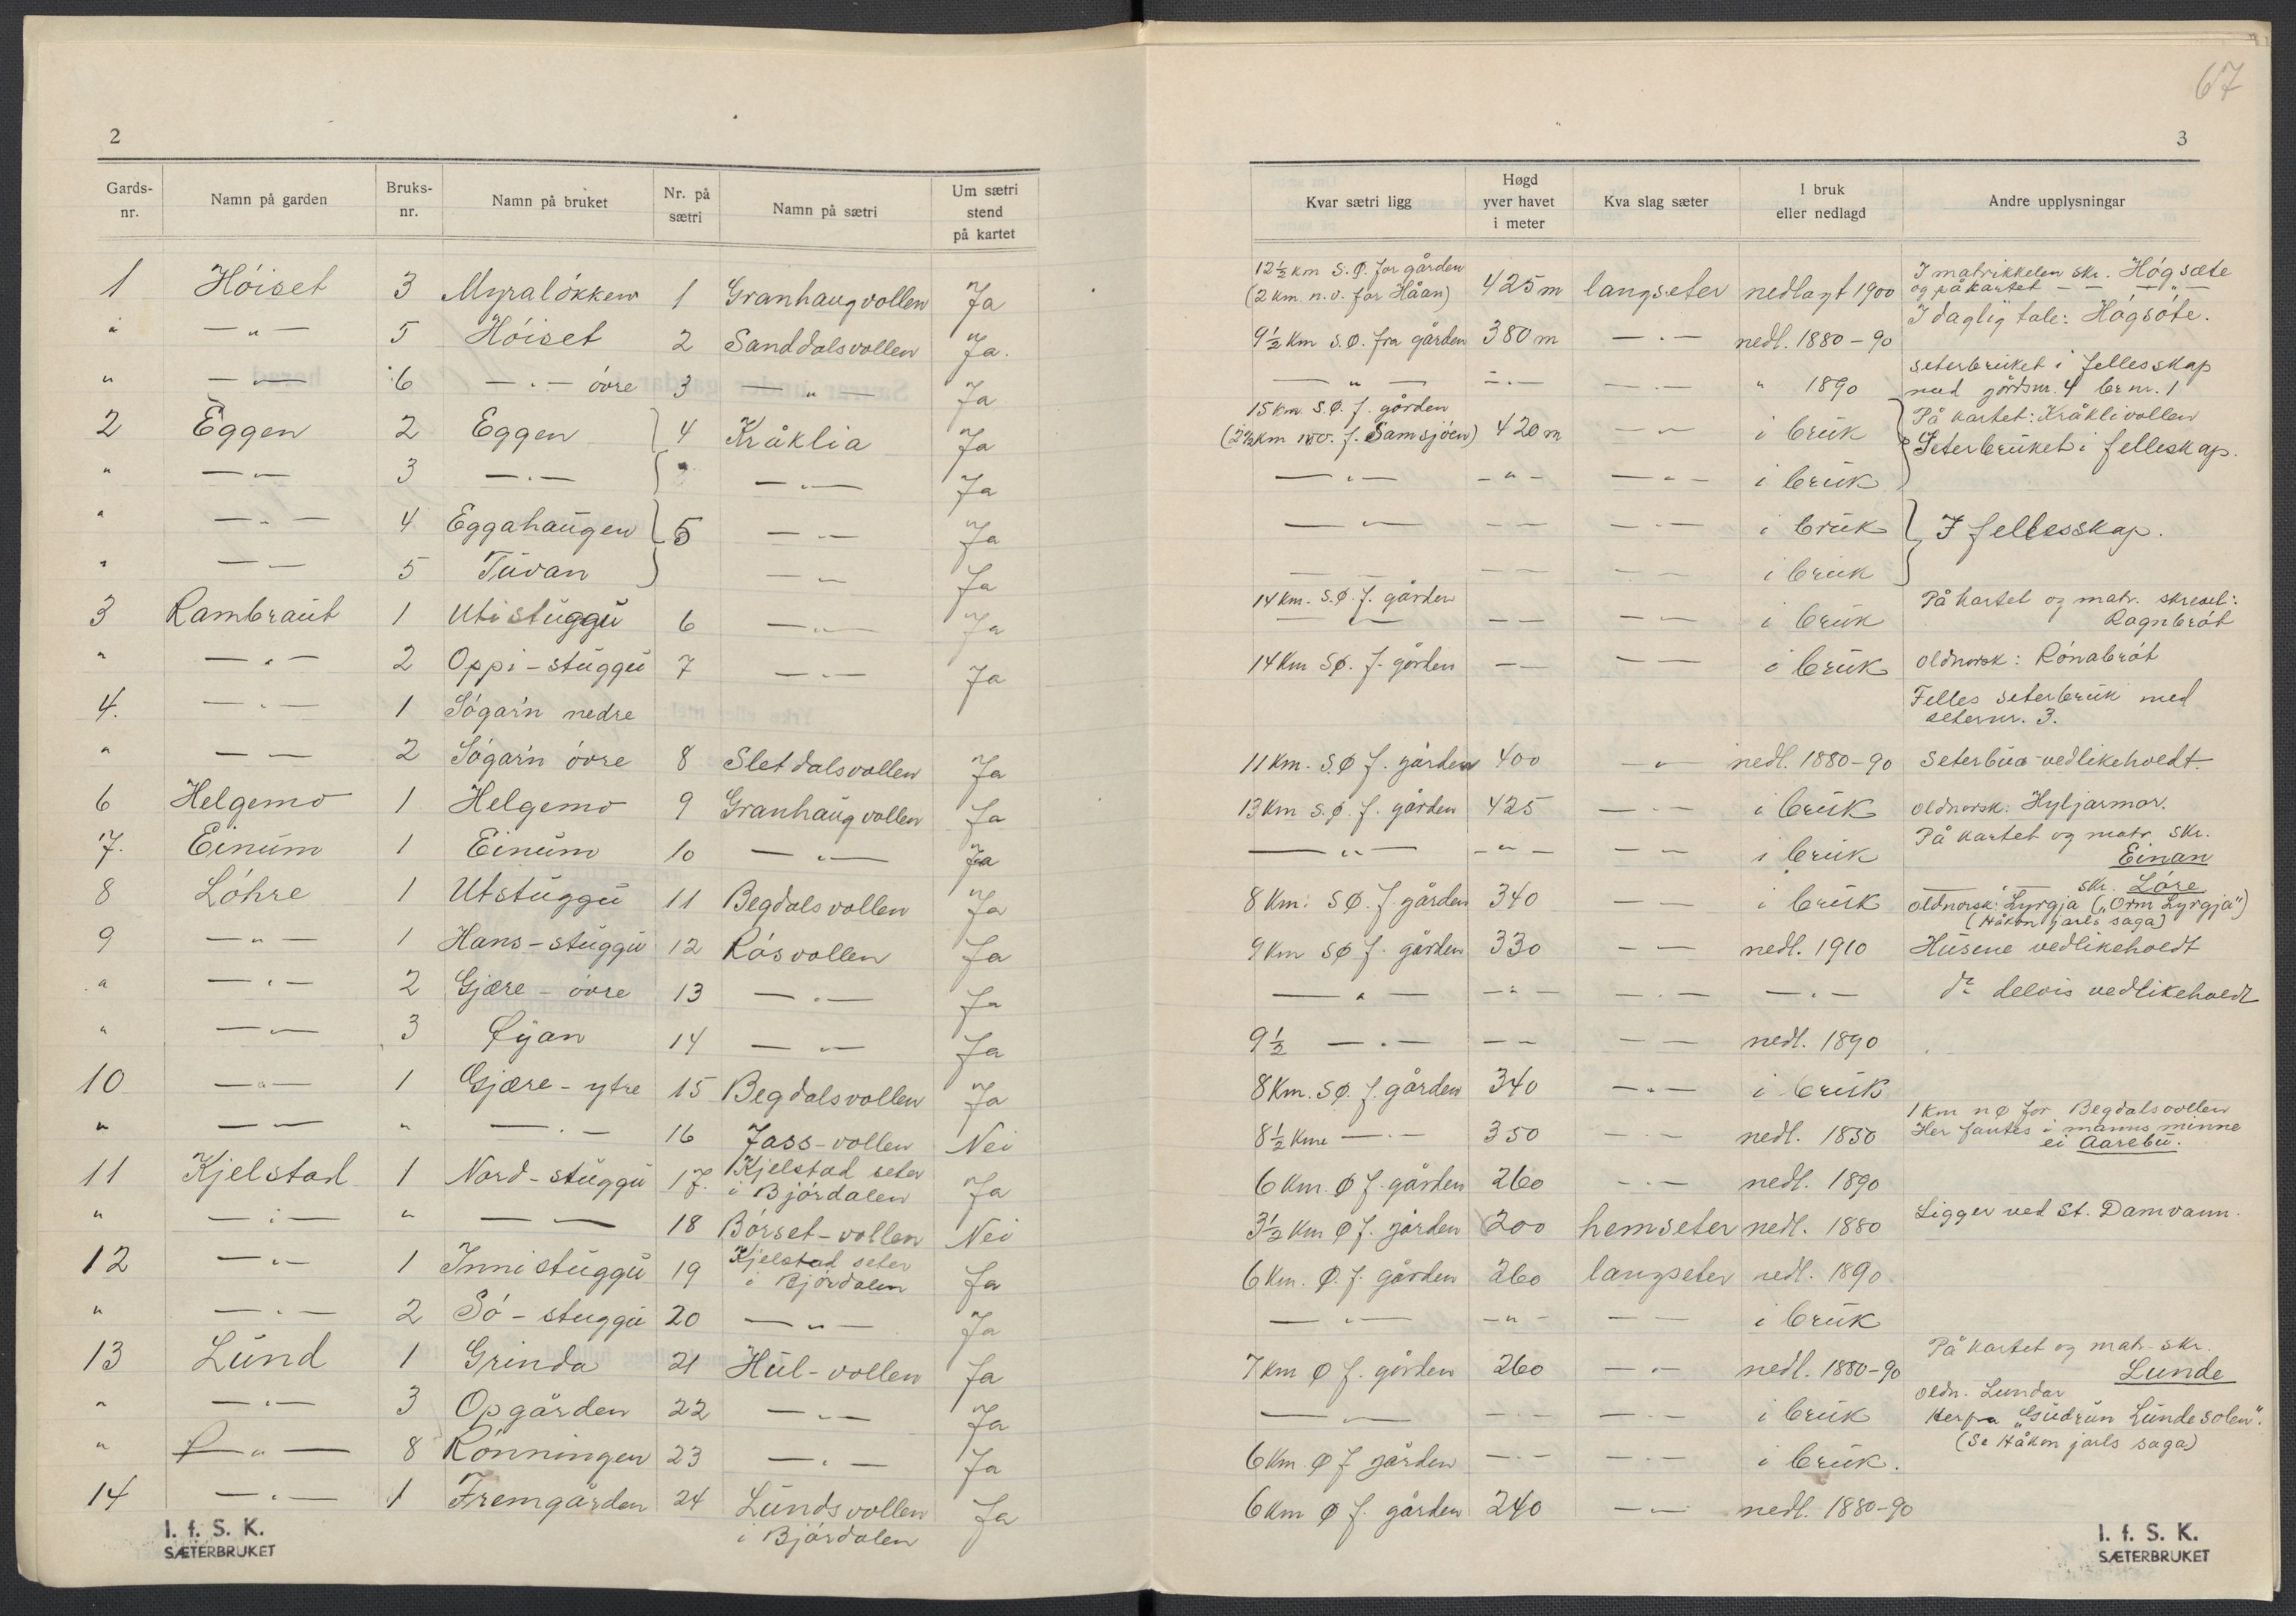 67
2
3
Gards-nr. Namn på garden Bruks-nr. Namn på bruket Nr. på sætri Namn på sætri Um sætri stend på kartet Kvar sætri ligg Høgd yver havet i meter Kva slag sæter I bruk eller nedlagd Andre upplysningar
1 Höiset 3 Myralökken 1 Granhaugvollen Ja 12½ km s.ø. for gården (2 km. n.v. for Håan) 425 m langseter nedlagt 1900 I matrikkelen skr. Högsæte og på kartet — " — I daglig tale: Högsöte.
" — " — 5 Höiset 2 Sanddalsvollen Ja. 9½ km s.ø. fra gården 380 m — " — nedl. 1880-90
" — " — 6 — " — övre 3 — " — Ja — " — — " — — " — " 1890 seterbruket i fellesskap med gårdsnr. 4 br.nr. 1
2 Eggen 2 Eggen 4 Kråklia Ja 15 km. s.ø. f. gården (2½ km n.v. f. Samsjöen) 420 m — " — i bruk På kartet: Kråklivollen Seterbruket i felleskap.
" — " — 3 — " — " — " — Ja — " — — " — — " — i bruk
" — " — 4 Eggahaugen 5 — " — Ja — " — — " — — " — i bruk I fellesskap.
" — " — 5 Tuvan — " — Ja — — — — — — i bruk
3 Rambraut 1 Utistuggu 6 — " — Ja 14 km. s.ø. f. gården — " — — — — " — i bruk På kartet og matr. skrevet: Ragnbröt
" — " — 2 Oppi-stuggu 7 — " — Ja 14 km sø. f. gården — — — — i bruk oldnorsk: Rönabröt
4. — " — 1 Sögar'n nedre Felles seterbruk med seternr. 3.
" — — 2 Sögar'n övre 8 Sletdalsvollen Ja 11 km. s.ø f. gården 400 — " — nedl. 1880-90 Seterbua vedlikeholdt.
6 Helgemo 1 Helgemo 9 Granhaugvollen Ja 13 km s.ø. f. gården 425 — " — i bruk oldnorsk: Hyljarmor.
7. Einum 1 Einum 10 — " — Ja — " — — " — — — i bruk På kartet og matr. skr. Einan
8 Löhre 1 Utstuggu 11 Begdalsvollen Ja 8 km. s.ø. f. gården 340 — — i bruk — " — skr. Löre oldnorsk: Lyrgja („Orm Lyrgja") (Håkon jarls saga)
9 — " — 1 Hans-stuggu 12 Rösvollen Ja 9 km sø f. gården 330 — — nedl. 1910 Husene vedlikeholdt
" — " — 2 Gjære-övre 13 — " — Ja — " — — " — — " — — " — do delvis vedlikeholdt
" — " — 3 Øyan 14 — " — Ja 9½ — " — — — — — nedl. 1890
10 — " — 1 Gjære-ytre 15 Begdalsvollen Ja 8 km. sø. f. gården 340 — " — i bruk
" — — " — " — 16 Jass-vollen Nei 8½ km — " — 350 — " — nedl. 1850 1 km nø for Begdalsvollen Her fantes i manns minne ei Aarebu.
11 Kjelstad 1 Nord-stuggu 17. Kjelstad seter i Björdalen Ja 6 km. ø f. gården 260 — " — nedl. 1890
" — " — " — — 18 Börset-vollen Nei 3½ km ø f. gården 200 hemseter nedl. 1880 Ligger ved St. Damvann.
12 — " — 1 Innistuggu 19 Kjelstad seter i Björdalen Ja 6 km. ø. f. gården 260 langseter nedl. 1890
" — " — 2 Sö-stuggu 20 — " — Ja — " — — " — — — i bruk
13 Lund 1 Grinda 21 Hul-vollen Ja 7 km ø f. gården 260 — " — nedl. 1880-90 På kartet og matr. skr. Lunde
" — " — 3 Opgården 22 — " — Ja — " — — " — — " — i bruk oldn. Lundar Herfra „Gudrun Lundesolen". (Se Håkon jarls saga)
" — " — 8 Rönningen 23 — " — Ja 6 km. ø f gården — " — — " — i bruk.
14 — " — 1 Fremgården 24 Lundsvollen i Björdalen Ja 6 km ø f. gården 240 — " — nedl. 1880-90
I. f. S. K.
SÆTERBRUKET
I. f. S. K.
SÆTERBRUKET